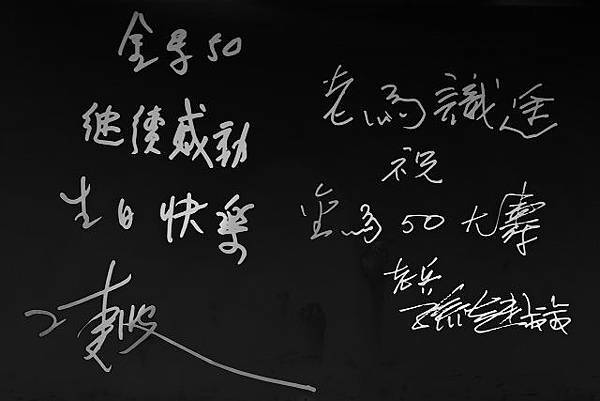 金馬50
继續感動
生日快樂
老馬識途
祝
金馬50大壽
老兵